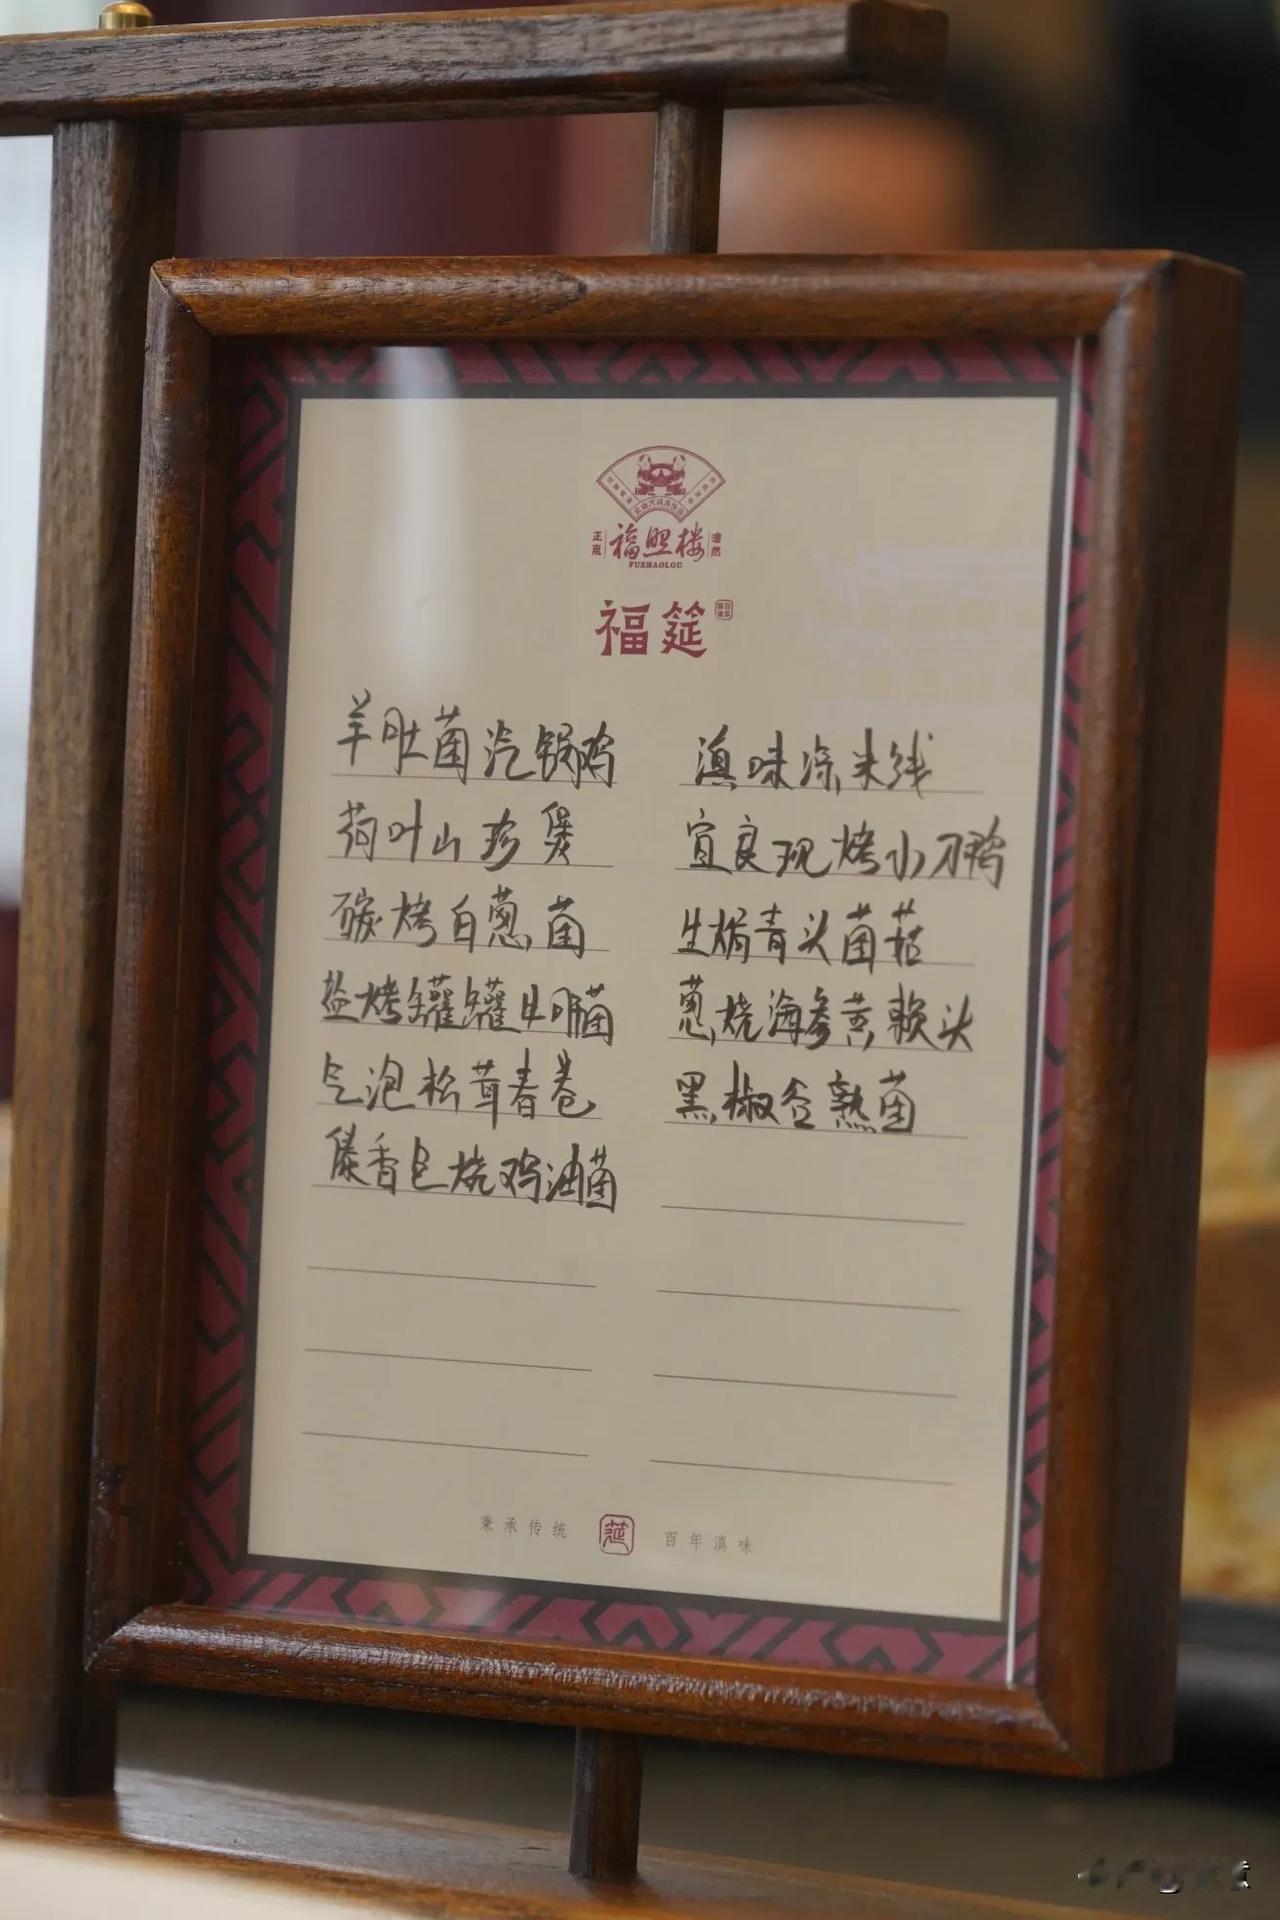 正宗 福照楼 潽然
FUZHAOLOU
福筵
羊肚菌汽锅鸡
荷叶山珍煲
碳烤白葱菌
盐烤罐罐牛肝菌
气泡松茸春卷
藤香包烧鸡油菌
滇味凉米线
宜良现烤小刀鸭
生焗青头菌菇
葱烧海参黄赖头
黑椒谷熟菌
秉承传统 筵 百年滇味